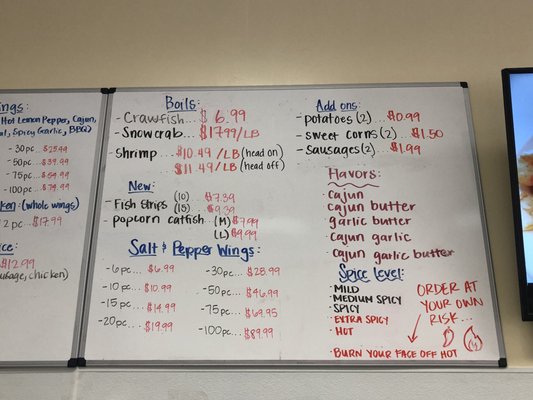 ngs:
Hot Lemon Pepper, Cajun,
al, Spicy Garlic, BBQ)
-30pc... $25.99
-50pc... $39.99
-75pc... $59.99
-100pc... $79.99
ken: (whole wings)
2 pc... $17.99
ice:
$12.99
usage, chicken)
Boils:
-Crawfish... $6.99
-Snowcrab... $17.99/LB
-Shrimp ... $10.49/LB (head on)
$11.49/LB (head off)
New:
-Fish Strips (10) .. $7.39
(15) .. $9.39
-popcorn catfish (M) $7.99
(L) $9.99
Salt & Pepper Wings:
-6pc... $6.99
-10pc... $10.99
-15pc... $14.99
-20pc... $19.99
-30pc... $28.99
-50pc... $46.99
-75pc... $69.95
-100pc... $89.99
Add ons:
-potatoes (2) ... $0.99
-sweet corns (2) ... $1.50
-sausages (2) ... $1.99
Flavors:
·Cajun
·Cajun butter
·garlic butter
·Cajun garlic
·Cajun garlic butter
Spice Level:
·MILD
·MEDIUM SPICY
·SPICY
·EXTRA SPICY
·HOT
·BURN YOUR FACE OFF HOT
ORDER AT
YOUR OWN
RISK...